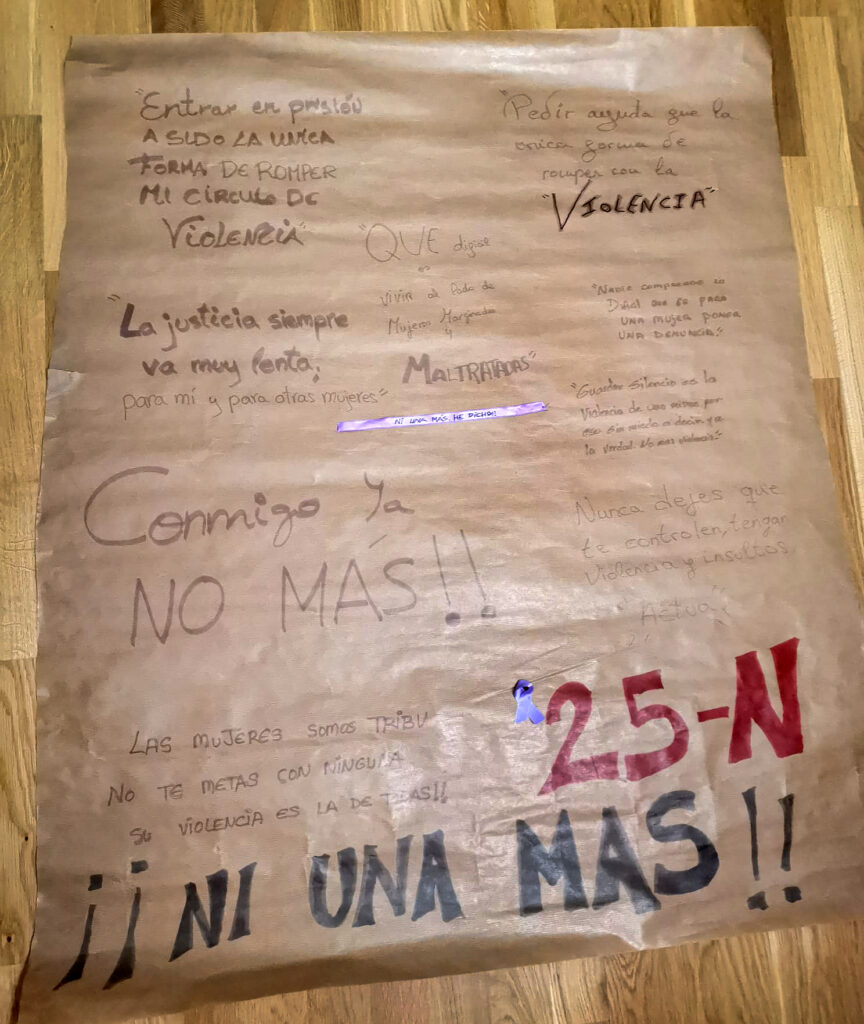 "Entrar en prisión
A SIDO LA UNICA
FORMA DE ROMPER
MI CÍRCULO DE
VIOLENZIA"
"Pedir ayuda que la
unica forma de
romper con la
"VIOLENCIA"
"QUE digial
es
VIVIR al lado de
Mujeres Marginadas
y
MALTRATADAS"
"Nadie comprende lo
Difícil que es para
UNA MUJER PONER
UNA DENUNCIA"
"La justicia siempre
va muy lenta;
para mí y para otras mujeres"
NI UNA MÁS, HE DICHO!!
"Guardar silencio es la
Violencia de uno mismo por
eso sin miedo a decir ya
la verdad. No mas violencia"
Conmigo Ya
NO MÁS!!
Nunca dejes que
te controlen, tengar
violencia y insultos
"Actua"
25-N
LAS MUJERES SOMOS TRIBU
NO TE METAS CON NINGUNA
SU VIOLENCIA ES LA DE TOAS!!
¡¡NI UNA MAS!!